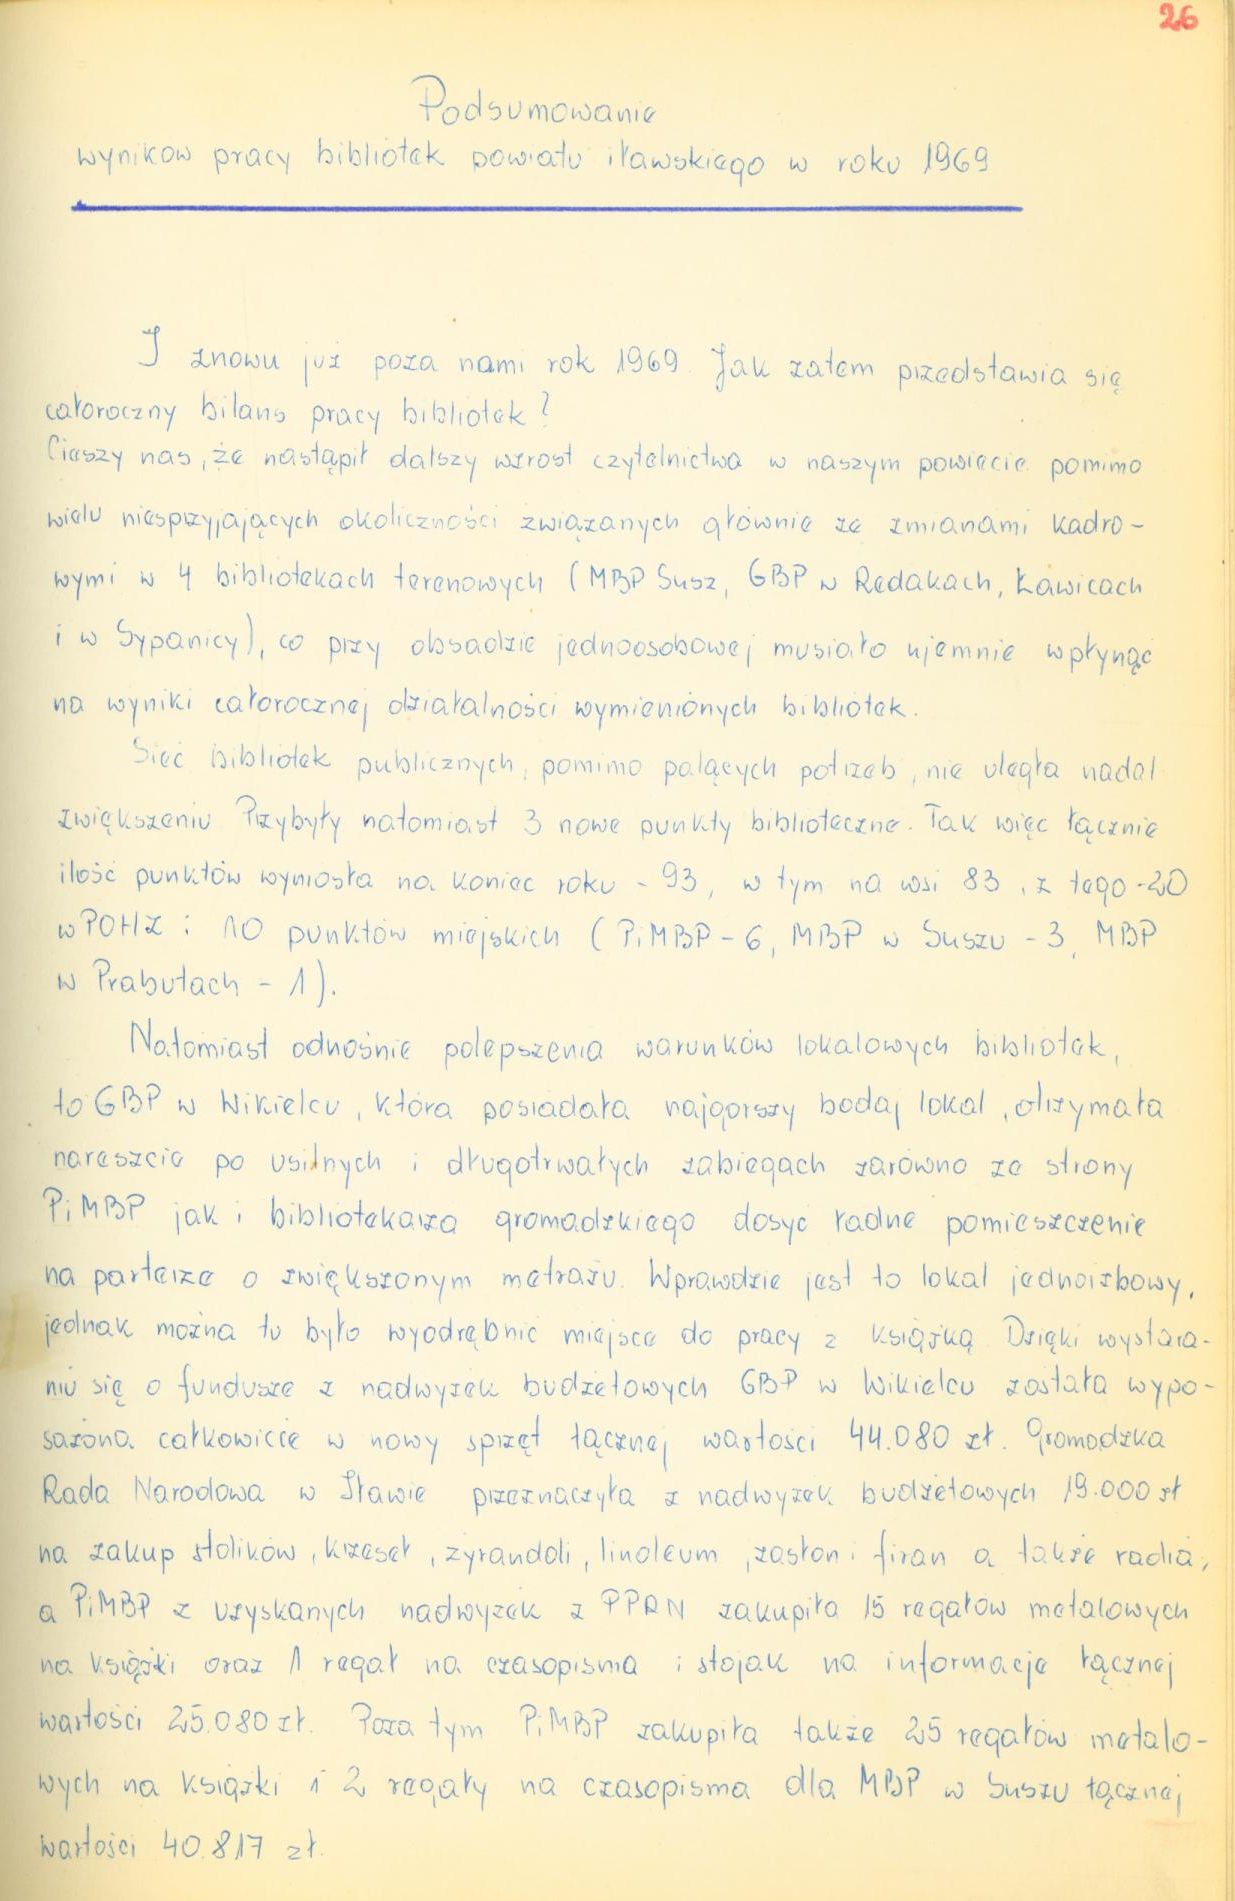 26
Podsumowanie
wyników pracy bibliotek powiatu iławskiego w roku 1969
I znowu już poza nami rok 1969. Jak zatem przedstawia się
całoroczny bilans pracy bibliotek?
Cieszy nas, że nastąpił dalszy wzrost czytelnictwa w naszym powiecie pomimo
wielu niesprzyjających okoliczności związanych głównie ze zmianami kadro-
wymi w 4 bibliotekach terenowych (MBP Susz, GBP w Redakach, Ławicach
i w Sypanicy), co przy obsadzie jednoosobowej musiało ujemnie wpłynąć
na wyniki całorocznej działalności wymienionych bibliotek.
Sieć bibliotek publicznych, pomimo palących potrzeb, nie uległa nadal
zwiększeniu. Przybyły natomiast 3 nowe punkty biblioteczne. Tak więc łącznie
ilość punktów wyniosła na koniec roku - 93, w tym na wsi 83, z tego - 20
w POHZ i 10 punktów miejskich (PiMBP - 6, MBP w Suszu - 3, MBP
w Prabutach - 1).
Natomiast odnośnie polepszenia warunków lokalowych bibliotek,
to GBP w Wikielcu, która posiadała najgorszy bodaj lokal, otrzymała
nareszcie po usilnych i długotrwałych zabiegach zarówno ze strony
PiMBP jak i bibliotekarza gromadzkiego dosyć ładne pomieszczenie
na parterze o zwiększonym metrażu. Wprawdzie jest to lokal jednoizbowy,
jednak można tu było wyodrębnić miejsce do pracy z książką. Dzięki wystara-
niu się o fundusze z nadwyżek budżetowych GBP w Wikielcu została wypo-
sażona całkowicie w nowy sprzęt łącznej wartości 44.080 zł. Gromadzka
Rada Narodowa w Iławie przeznaczyła z nadwyżek budżetowych 19.000 zł
na zakup stolików, krzeseł, żyrandoli, linoleum, zasłon i firan a także radia,
a PiMBP z uzyskanych nadwyżek z PPRN zakupiła 15 regałów metalowych
na książki oraz 1 regał na czasopisma i stojak na informacje łącznej
wartości 25.080 zł. Poza tym PiMBP zakupiła także 25 regałów metalo-
wych na książki i 2 regały na czasopisma dla MBP w Suszu łącznej
wartości 40.817 zł.